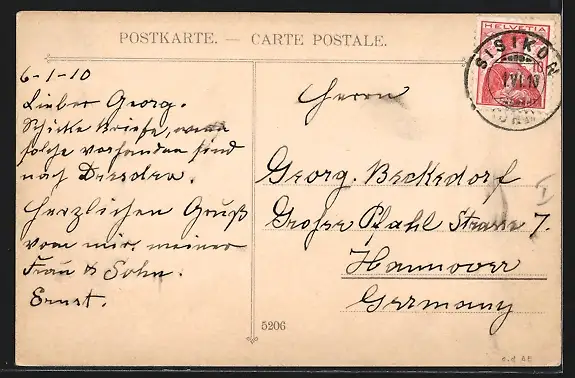 POSTKARTE. — CARTE POSTALE.
HELVETIA
10
SISIKON
1.VI.10
6-1-10
Lieber Georg.
Schicke Briefe, wenn
solche vorhanden sind
nach Dresden.
Herzlichen Gruß
von mir, meiner
Frau & Sohn.
Ernst.
Herrn
Georg. Beckedorf
Große Pfahl Strasse 7.
Hannover
Germany
5206